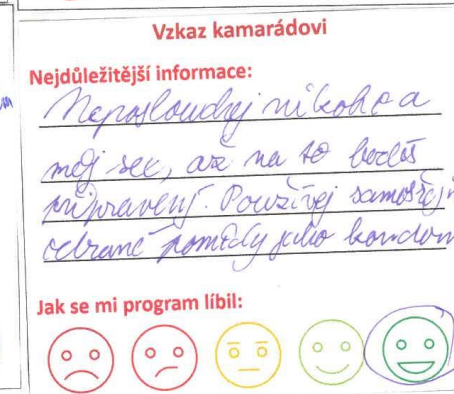 Vzkaz kamarádovi
Nejdůležitější informace:
Neposlouchej nikoho a
měj sex, až na to budeš
připravený. Používej samozřej
ochrané pomůcky jako kondom
Jak se mi program líbil: